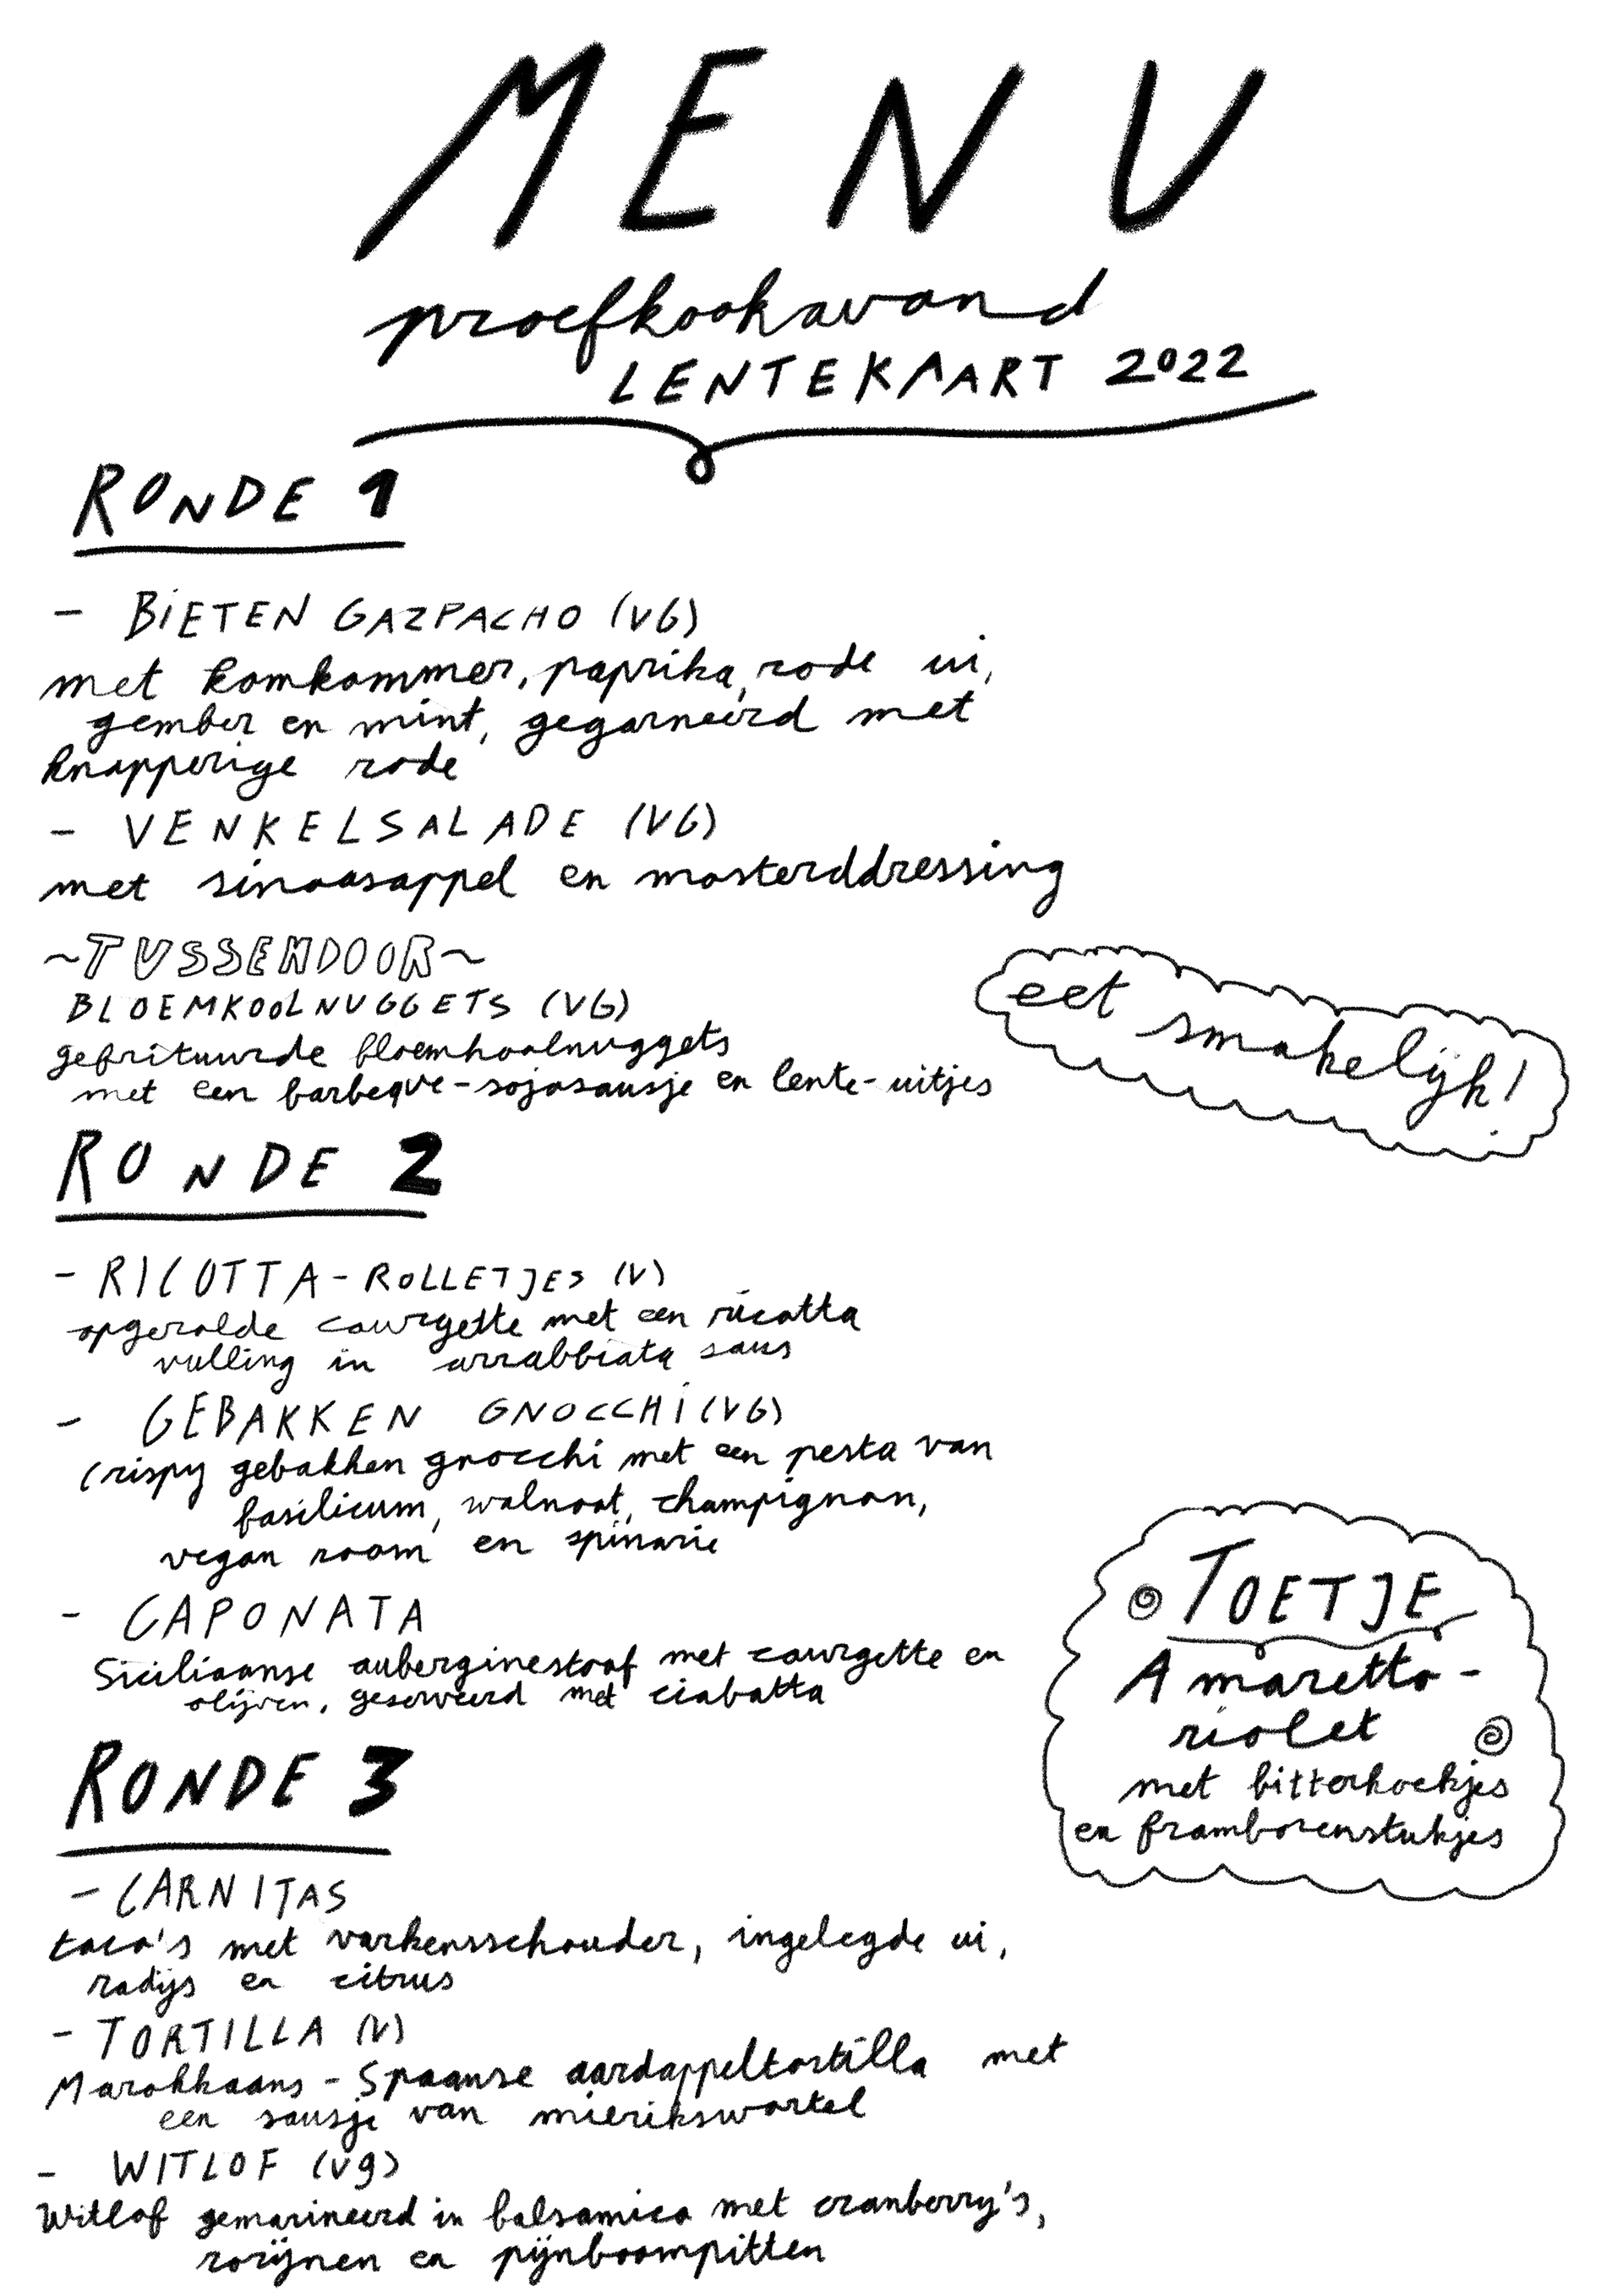 MENU
proefkookavond
LENTEKAART 2022
RONDE 1
- BIETEN GAZPACHO (VG)
met komkommer, paprika, rode ui,
gember en mint, gegarneerd met
knapperige rode
- VENKELSALADE (VG)
met sinaasappel en mosterddressing
~TUSSENDOOR~
BLOEMKOOLNUGGETS (VG)
gefrituurde bloemkoolnuggets
met een barbeque-sojasausje en lente-uitjes
eet smakelijk!
RONDE 2
- RICOTTA-ROLLETJES (V)
opgerolde courgette met een ricotta
vulling in arrabbiata saus
- GEBAKKEN GNOCCHI (VG)
Crispy gebakken gnocchi met een pesto van
basilicum, walnoot, champignon,
vegan room en spinazie
- CAPONATA
Siciliaanse auberginestoof met courgette en
olijven, geserveerd met ciabatta
TOETJE
Amaretto-
riolet
met bitterkoekjes
en frambozenstukjes
RONDE 3
- CARNITAS
taco's met varkensschouder, ingelegde ui,
radijs en citrus
- TORTILLA (V)
Marokkaans - Spaanse aardappeltortilla met
een sausje van mierikswortel
- WITLOF (vg)
Witlof gemarineerd in balsamico met cranberry's,
rozijnen en pijnboompitten